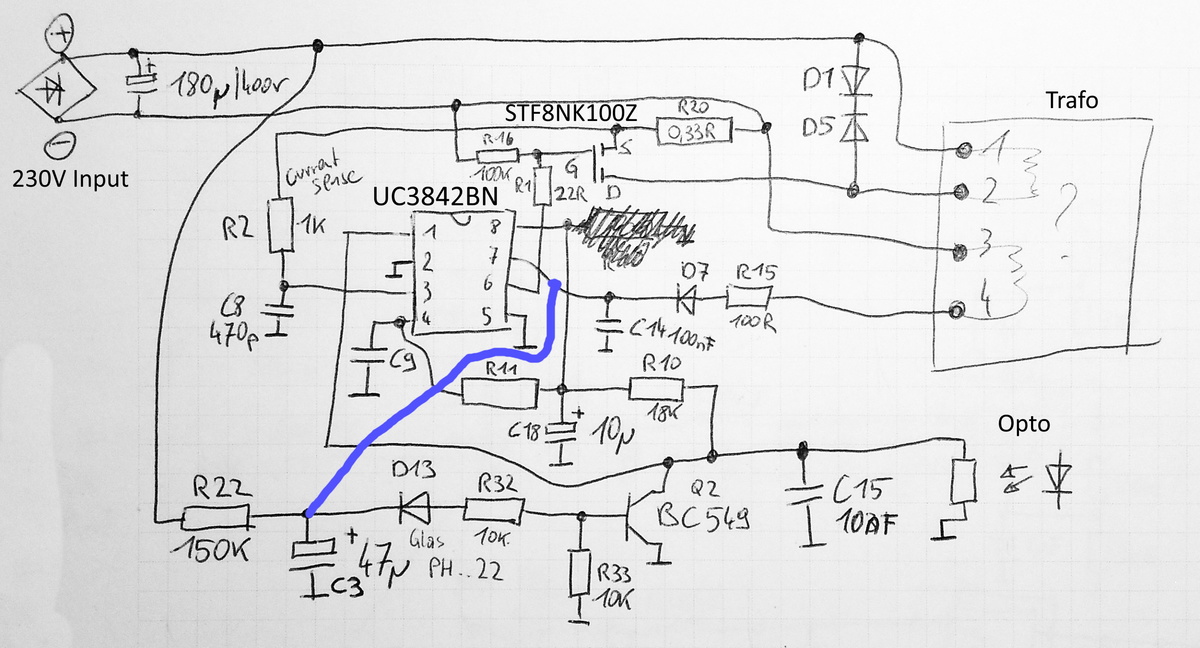 +
180µ/400v
230V Input
Current
Sense
R2
1K
C8
470p
UC3842BN
1
2
3
4
8
7
6
5
STF8NK100Z
R16
100K
R1
22R
G
S
D
R20
0,33R
D1
D5
Trafo
1
2
3
4
?
D7
R15
100R
C14 100nF
C9
R11
R10
18K
C18
+
10µ
Opto
R22
150K
+
47µ
C3
D13
Glas
PH...22
R32
10K
R33
10K
Q2
BC549
C15